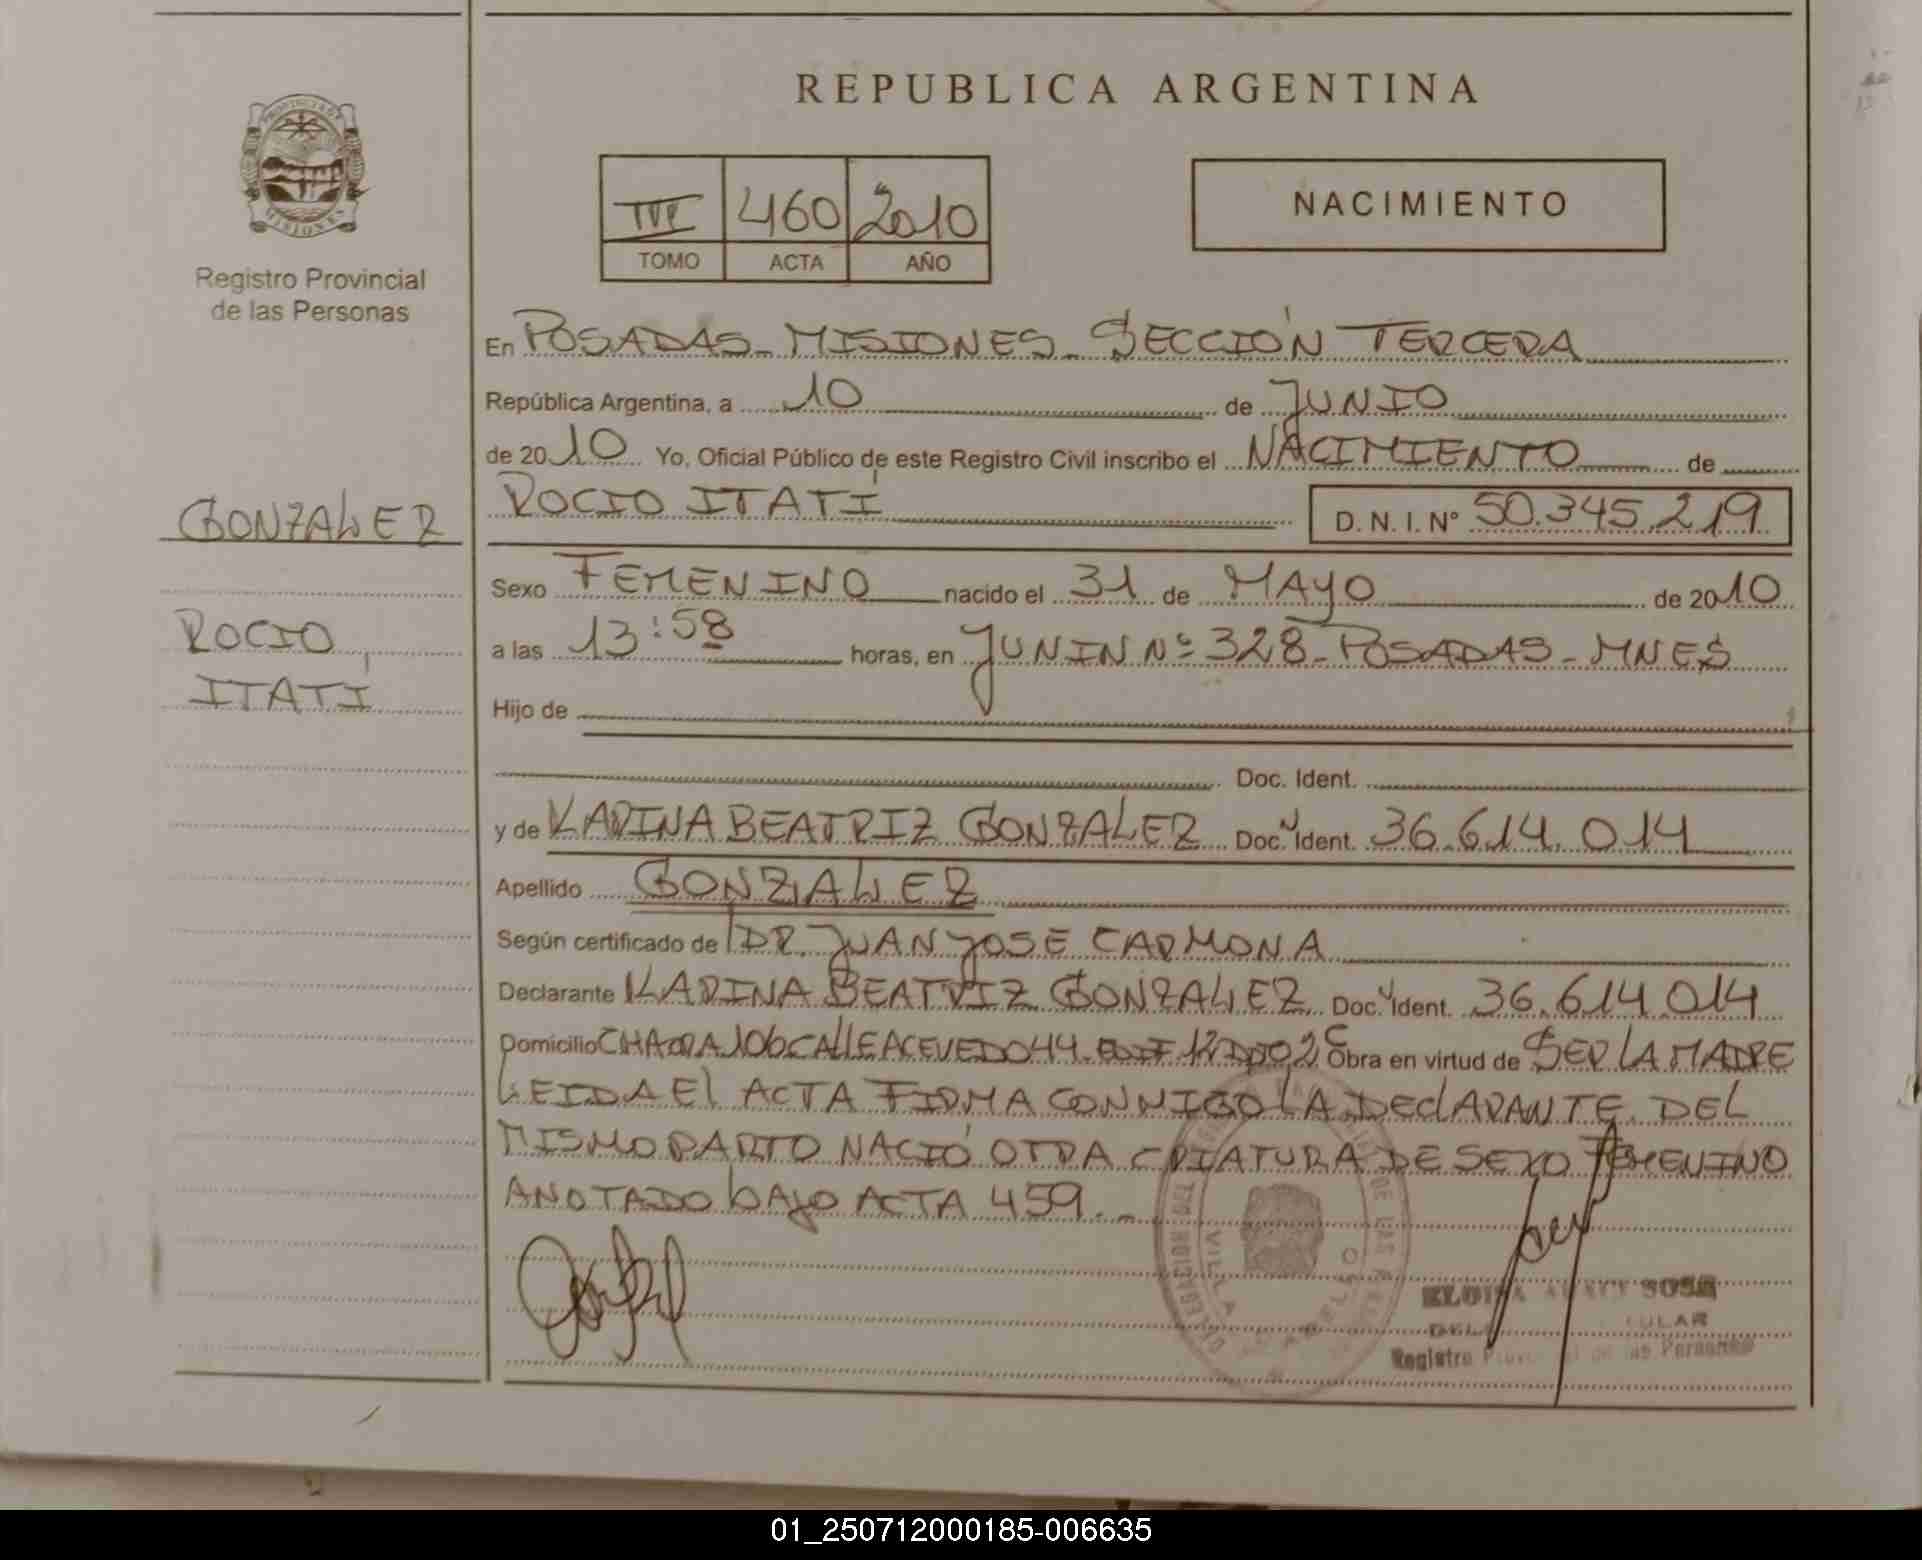 REPUBLICA ARGENTINA
PROVINCIA DE
MISIONES
Registro Provincial
de las Personas
III 460 2010
TOMO ACTA AÑO
NACIMIENTO
En POSADAS - MISIONES - SECCIÓN TERCERA
República Argentina, a 10 de JUNIO
de 2010 Yo, Oficial Público de este Registro Civil inscribo el NACIMIENTO de
ROCIO ITATÍ D. N. I. Nº 50.345.219
GONZALEZ
ROCIO
ITATÍ
Sexo FEMENINO nacido el 31 de MAYO de 2010
a las 13:58 horas, en JUNIN Nº 328 - POSADAS - MNES
Hijo de
Doc. Ident.
y de KARINA BEATRIZ GONZALEZ Doc. Ident. 36.614.014
Apellido GONZALEZ
Según certificado de DR. JUAN JOSE CARMONA
Declarante KARINA BEATRIZ GONZALEZ Doc. Ident. 36.614.014
Domicilio CHACRA 106 CALLE ACEVEDO 44 EDIF 12 DPTO 2 C Obra en virtud de SER LA MADRE
LEIDA El ACTA FIRMA CONMIGO LA DEClARANTE. DEL
MISMO PARTO NACIÓ OTRA CRIATURA DE SEXO FEMENINO
ANOTADO bAJO ACTA 459. -
DELEGACION VILLA
DE LAS
ELOISA SOSA
Registro de las Personas
01_250712000185-006635